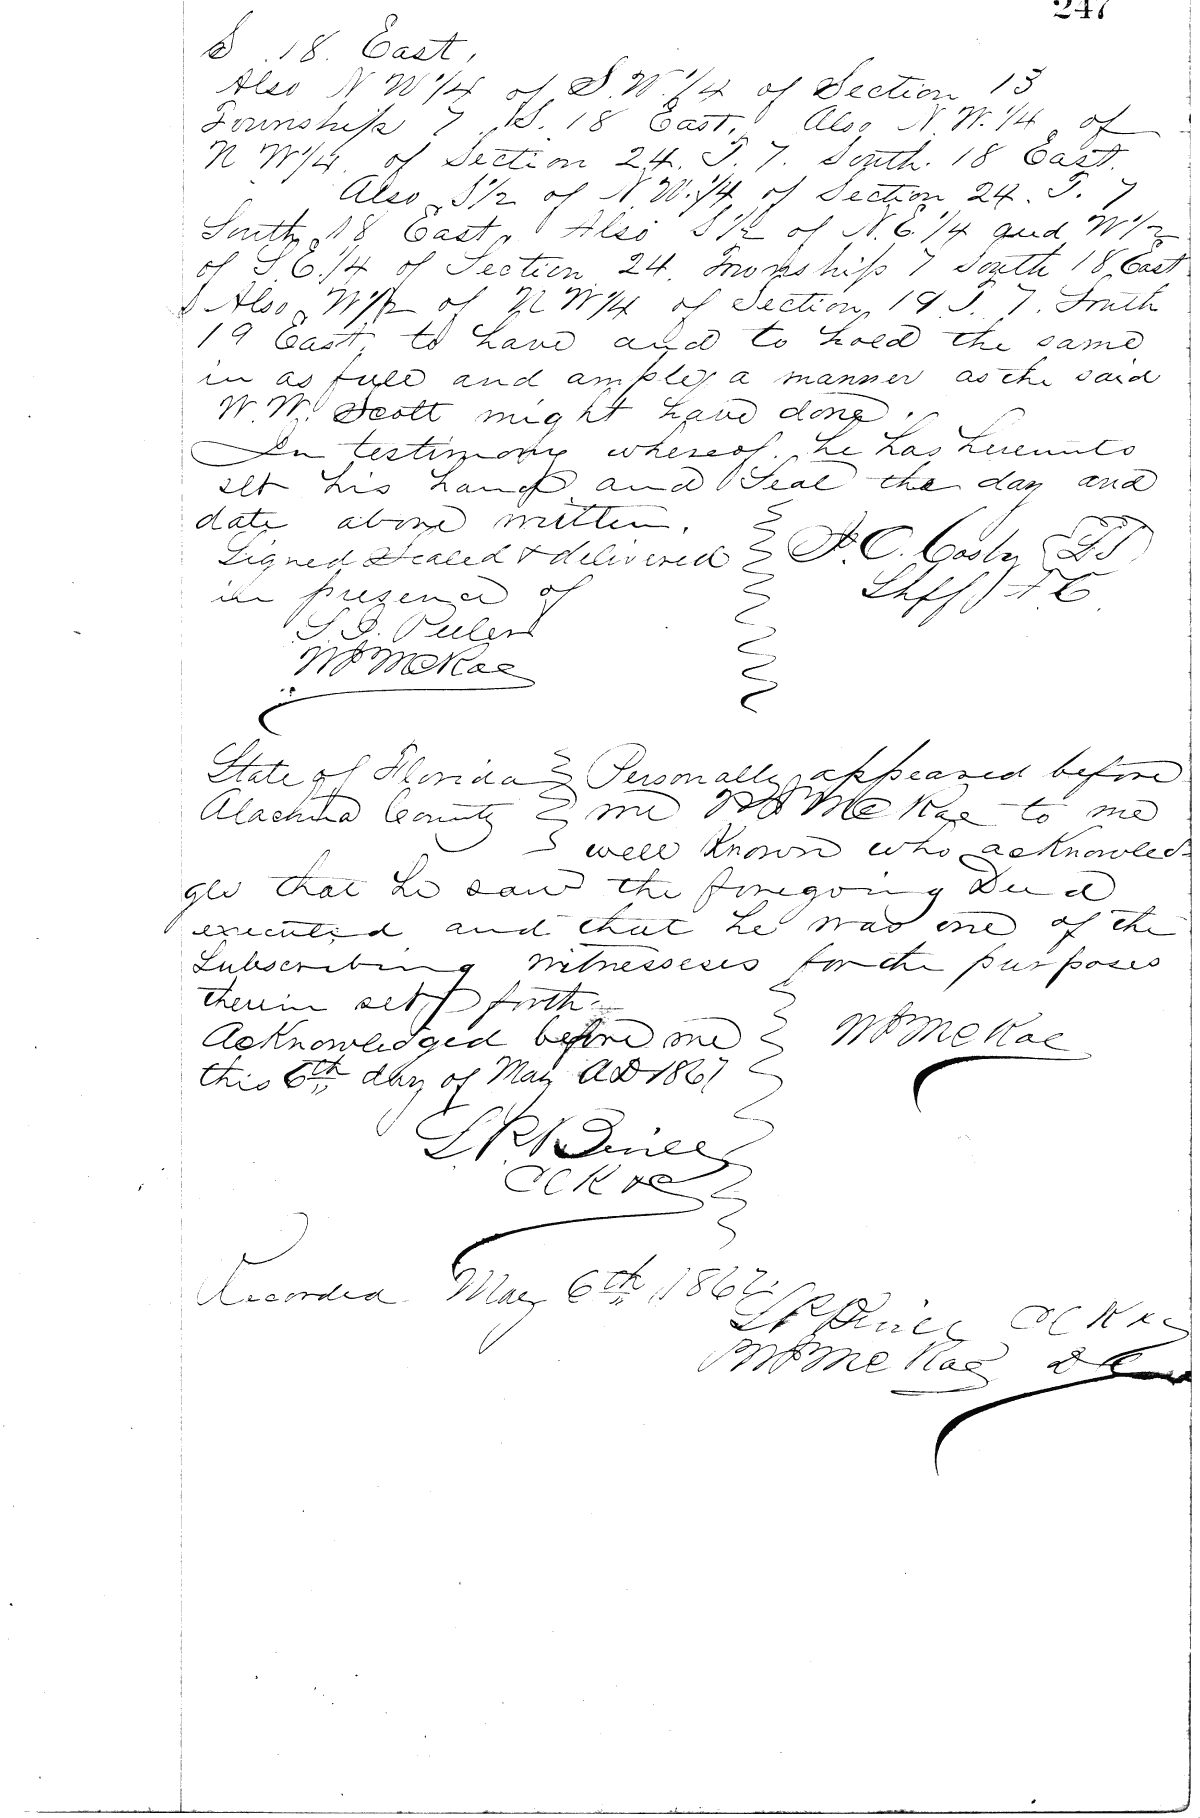 247
S. 18. East,
Also N W 1/4 of S. W. 1/4 of Section 13
Township 7 S. 18 East. Also N. W. 1/4 of
N W 1/4 of Section 24. T. 7. South. 18 East.
Also S 1/2 of N. W. 1/4 of Section 24. T. 7
South 18 East, Also S 1/2 of N. E. 1/4 and W 1/2
of S. E. 1/4 of Section 24. Township 7 South 18 East
Also W 1/2 of N W 1/4 of Section 19 T. 7. South
19 East, to have and to hold the same
in as full and ample a manner as the said
W. W. Scott might have done.
In testimony whereof he has hereunto
set his hand and Seal the day and
date above written.
Signed Sealed & delivered
in presence of
McRae
P. C. Cosby LS
Shff A C
State of Florida Personally appeared before
Alachua County me McRae to me
well Known who acknowled-
ges that he saw the foregoing Deed
executed and that he was one of the
Subscribing witnesseses for the purposes
therein set forth.
Acknowledged before me
this 6th day of May AD 1867
McRae
L. R.
Recorded May 6th, 1867
McRae D C